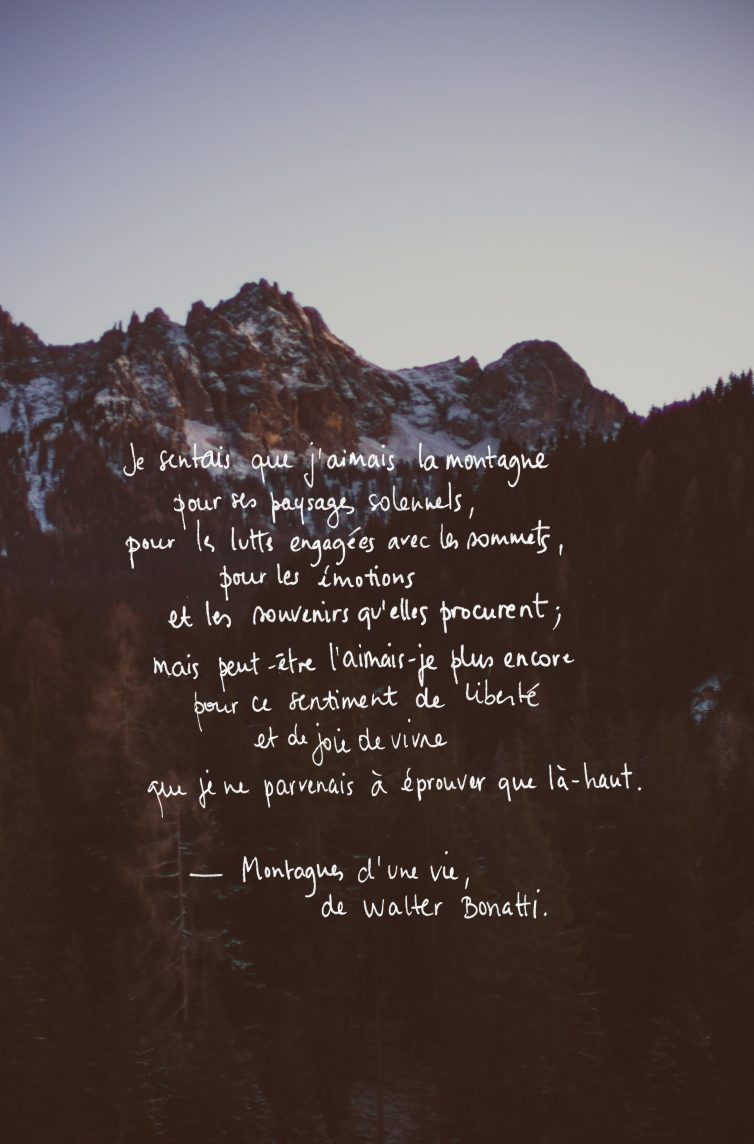 Je sentais que j'aimais la montagne
pour ses paysages solennels,
pour les luttes engagées avec les sommets,
pour les émotions
et les souvenirs qu'elles procurent ;
mais peut-être l'aimais-je plus encore
pour ce sentiment de liberté
et de joie de vivre
que je ne parvenais à éprouver que là-haut.
— Montagnes d'une vie,
de Walter Bonatti.